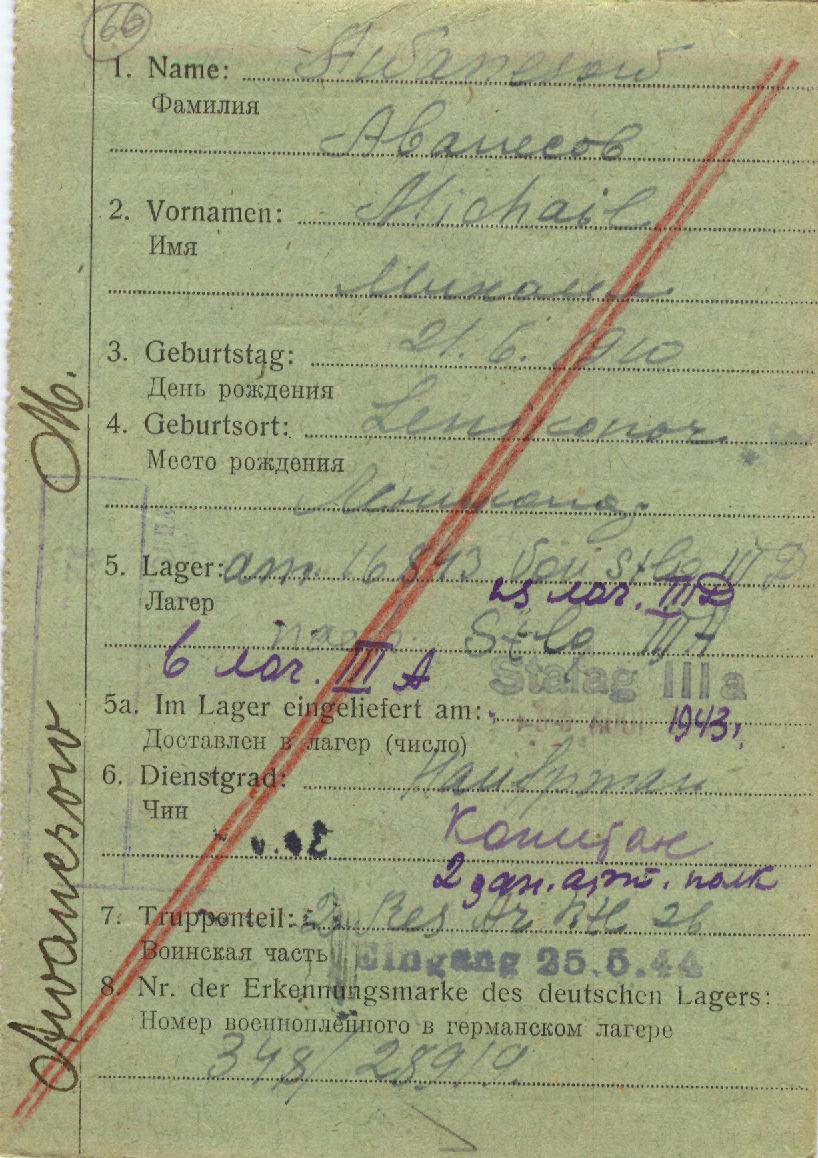 66
1. Name: Awanesow
Фамилия
Аванесов
2. Vornamen: Michail
Имя
Михаил
3. Geburtstag: 21. 6. 1910
День рождения
4. Geburtsort:
Место рождения
5. Lager: am 16 8 43 von Stlg III D
Лагерь
из лаг. III D
nach Stlg III A
в лаг. III A
Stalag IIIa
5a. Im Lager eingeliefert am: 1943 г.
Доставлен в лагерь (число)
6. Dienstgrad:
Чин
Капитан
2 зап. арт. полк
7. Truppenteil: 2 Res Ar
Воинская часть
Eingang 25.5.44
8. Nr. der Erkennungsmarke des deutschen Lagers:
Номер военнопленного в германском лагере
348/
Awanesow M.